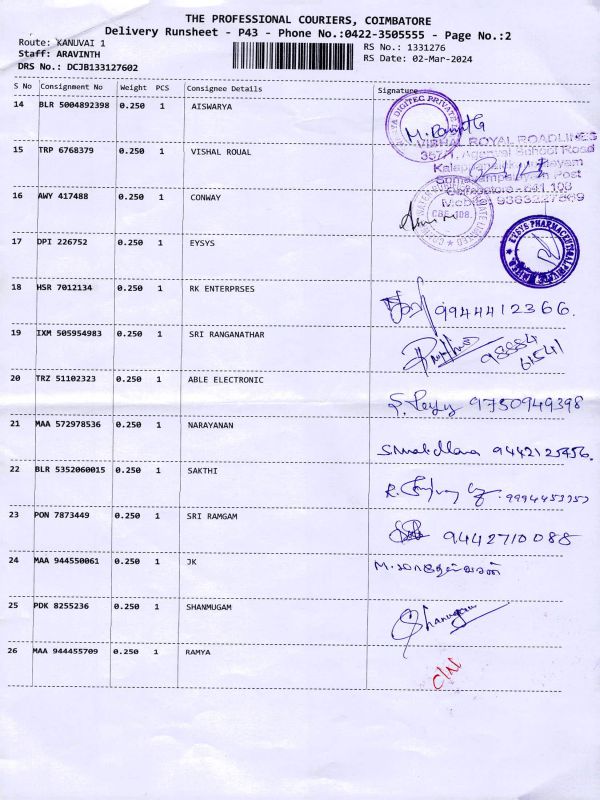 THE PROFESSIONAL COURIERS, COIMBATORE
Delivery Runsheet - P43 - Phone No.:0422-3505555 - Page No.:2
Route: KANUVAI 1
RS No.: 1331276
Staff: ARAVINTH
RS Date: 02-Mar-2024
DRS No.: DCJB133127602
S No Consignment No Weight PCS Consignee Details Signature
14 BLR 5004892398 0.250 1 AISWARYA
DIGITEC PRIVATE
15 TRP 6768379 0.250 1 VISHAL ROUAL
VISHAL ROYAL ROADLINES
School Road
Post
Coimbatore - 641 108
Mobile: 9363227869
16 AWY 417488 0.250 1 CONWAY
CBE
17 DPI 226752 0.250 1 EYSYS
EYSYS PHARMACEUTICAL
18 HSR 7012134 0.250 1 RK ENTERPRSES
9944412366.
19 IXM 505954983 0.250 1 SRI RANGANATHAR
98884
61541
20 TRZ 51102323 0.250 1 ABLE ELECTRONIC
9750949398
21 MAA 572978536 0.250 1 NARAYANAN
9442125456.
22 BLR 5352060015 0.250 1 SAKTHI
23 PON 7873449 0.250 1 SRI RAMGAM
9442710088
24 MAA 944550061 0.250 1 JK
25 PDK 8255236 0.250 1 SHANMUGAM
Shanmugam
26 MAA 944455709 0.250 1 RAMYA